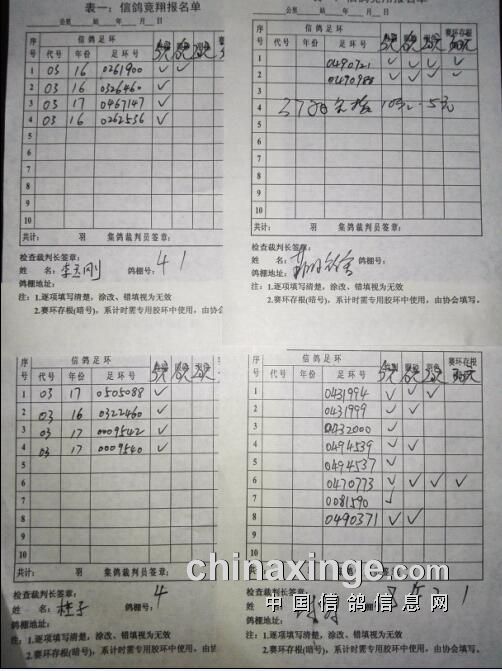 表一：信鸽竞翔报名单
公里 站 年 月 日
序号 信鸽足环
代号 年份 足环号
1 03 16 0261900 ✓ ✓
2 03 16 0326460 ✓
3 03 17 0467147 ✓
4 03 16 0262536 ✓
5
6
7
8
9
10
共计： 羽 集鸽裁判员签章：
检查裁判长签章：
姓 名： 鸽棚号： 41
鸽棚地址：
注：1.逐项填写清楚，涂改、错填视为无效
2.要环存根(暗号)，系计时需专用胶环中使用，由协会
表一：信鸽竞翔报名单
公里 站 年 月 日
序号 信鸽足环 要环存根
代号 年份 足环号
1 0490721 ✓ ✓ ✓ ✓
2 0490988 ✓ ✓ ✓ ✓
3
4
5
6
7
8
9
10
共计： 羽 集鸽裁判员签章：
检查裁判长签章：
姓 名： 鸽棚号：
鸽棚地址：
注：1.逐项填写清楚，涂改、错填视为无效
2.要环存根(暗号)，系计时需专用胶环中使用，由协会填写。
序号 信鸽足环
代号 年份 足环号
1 03 17 0505088 ✓
2 03 16 0322460 ✓
3 03 17 0009542 ✓
4 03 17 0009540 ✓
5
6
7
8
9
10
共计： 羽 集鸽裁判员签章：
检查裁判长签章：
姓 名： 鸽棚号： 4
鸽棚地址：
注：1.逐项填写清楚、涂改、错填视为无效
2.要环存根(暗号)，系计时需专用胶环中使用，由协会
序号 信鸽足环 要环存根
代号 年份 足环号
1 0431994 ✓ ✓ ✓
2 0431999 ✓ ✓
3 0432000 ✓
4 0494539 ✓ ✓
5 0494537 ✓
6 0470773 ✓ ✓ ✓ ✓
7 0081590 ✓
8 0490371 ✓ ✓
共计： 羽 集鸽裁判员签章：
检查裁判长签章：
姓 名：
鸽棚地址：
注：1.逐项填写清楚、涂改、错填视为无效
2.要环存根(暗号)，系计时需专用胶环中使用，由协会填写。
chinaxinge.com
中国信鸽信息网